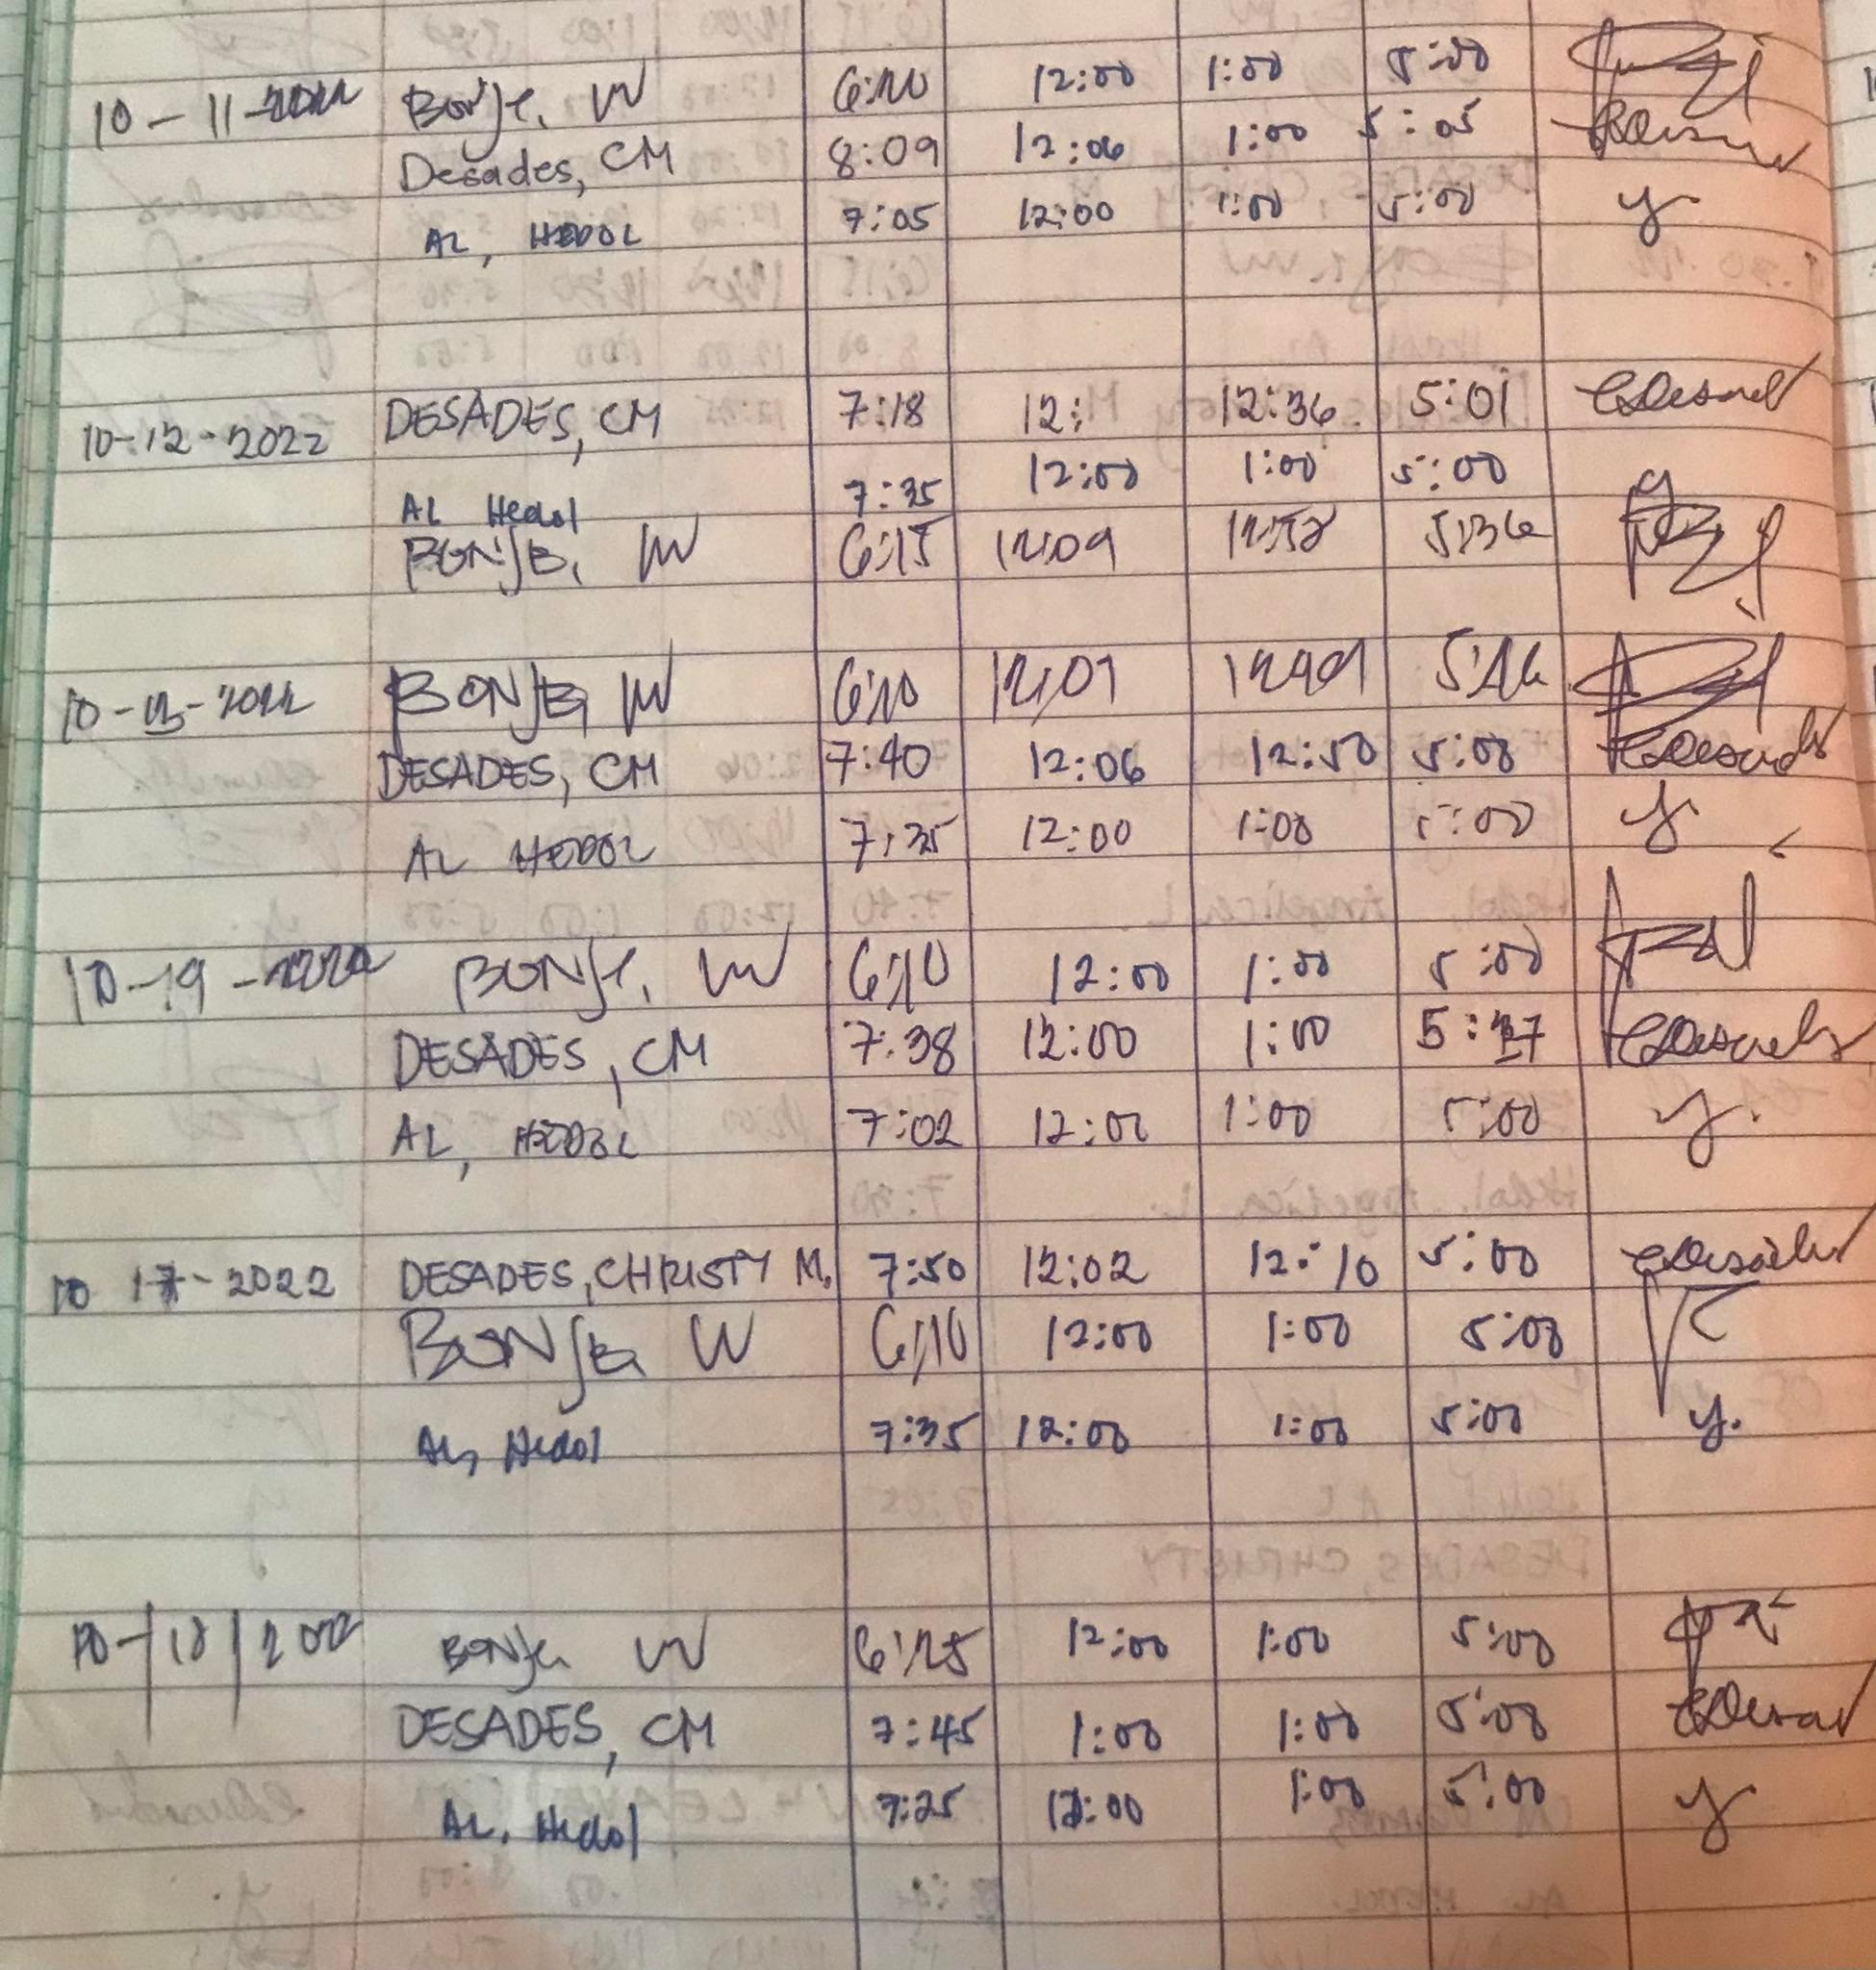 10-11-2022 Bonje, W 6:20 12:00 1:00 5:00
Desades, CM 8:09 12:06 1:00 5:05
AL, HEDOL 7:05 12:00 1:00 5:00 y
10-12-2022 DESADES, CM 7:18 12: 12:36 5:01
AL Hedol 7:35 12:00 1:00 5:00 y
BONJE, W 6:15 12:09 12:58 5:36
10-13-2022 BONJE, W 6:20 12:01
DESADES, CM 7:40 12:06 12:50 5:00
AL HEDOL 7:35 12:00 1:00 5:00 y
10-19-2022 BONJE, W 6:10 12:00 1:00 5:00
DESADES, CM 7:38 12:00 1:00 5:37
AL, HEDOL 7:02 12:00 1:00 5:00 y.
10 17-2022 DESADES, CHRISTY M. 7:50 12:02 12:10 5:00
BONJE W 6:10 12:00 1:00 5:00
AL, Hedol 7:35 12:00 1:00 5:00 y.
10-/18/2022 BONJE W 6:25 12:00 1:00 5:00
DESADES, CM 7:45 1:00 1:00 5:00
AL. Hedol 7:25 12:00 1:00 5:00 y